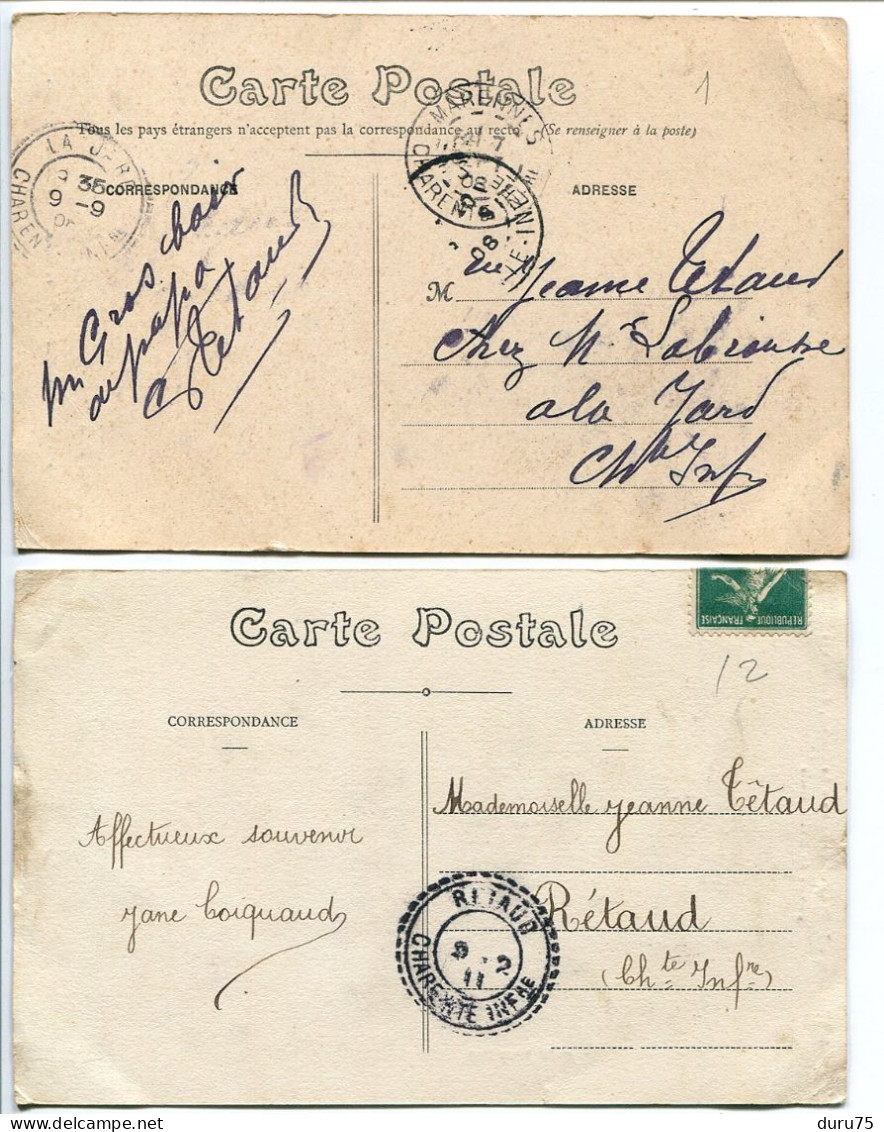 Carte Postale
1
Tous les pays étrangers n'acceptent pas la correspondance au recto (Se renseigner à la poste)
MARENNES
CHARENTE
08
LA J
35
9 -9
CHAREN
CORRESPONDANCE
ADRESSE
Gros baiser
du papa
Tetaud
M
Jeanne Tetaud
Chez Mr
a la Jard
Chte Infre
Carte Postale
RÉPUBLIQUE FRANÇAISE
12
CORRESPONDANCE
ADRESSE
Mademoiselle Jeanne Têtaud
Affectueux souvenir
Jane Coiquaud
RETAUD
9 -2
11
CHARENTE INFRE
Rétaud
(Chte Infre)
duru75